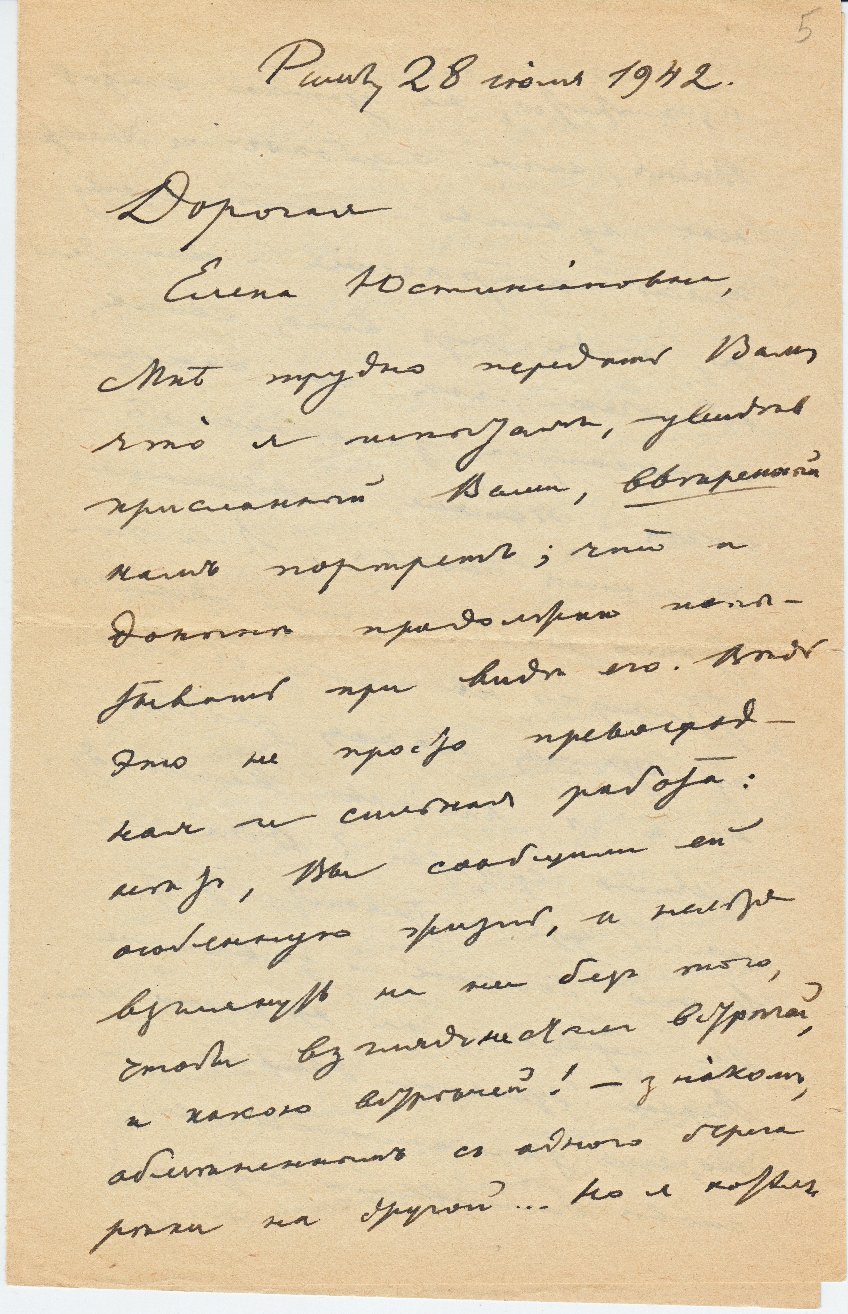 5
Римъ, 28 іюля 1942.
Дорогая
Елена Юстиніановна,
Мнѣ трудно передать Вамъ
что я испыталъ, увидѣвъ
присланный Вами, ввѣренный
намъ портретъ; что и
донынѣ продолжаю испы-
тывать при видѣ его. Вѣдь
это не просто превосход-
ная и сильная работа:
нѣтъ, Вы сообщили ей
особенную жизнь, и нельзя
взглянуть на нее безъ того,
чтобы взглядъ не сталъ встрѣчей,
и какою встрѣчей! — знакомъ,
обмѣненнымъ съ одного берега
рѣки на другой... Но я